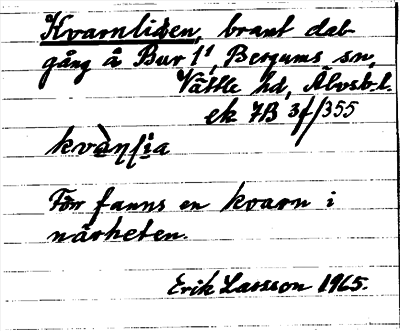 Kvarnliden, brant dal-
gång å Bur 1¹, Bergums sn,
Vättle hd, Älvsb.l.
ek 7B 3f/355
Förr fanns en kvarn i
närheten.
Erik Larsson 1965.